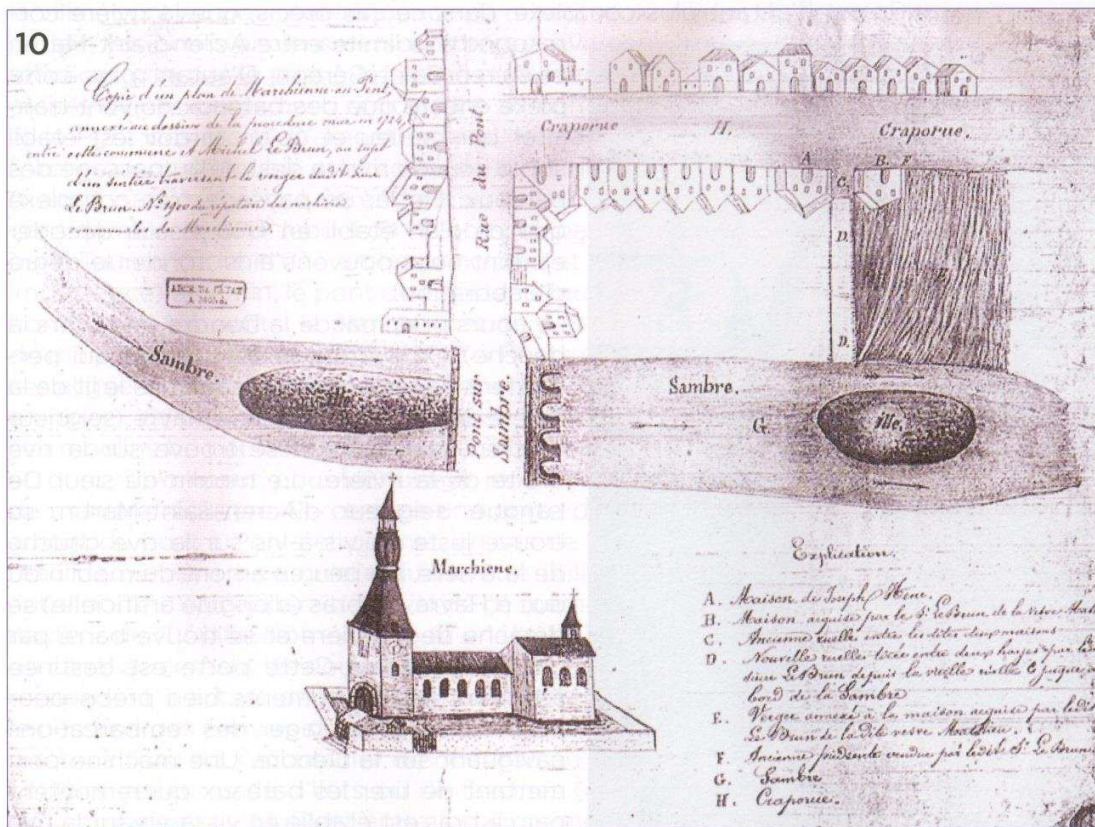 10
Copie d'un plan de Marchienne au Pont,
annexé au dossier de la procédure mue en 1724
entre cette commune et Michel Le Brun, au sujet
d'un sentier traversant le verger du dit sieur
Le Brun, N°
ARCH. DE L'ÉTAT
À MONS.
Craporue
H.
Craporue.
Rue du Pont.
A
B.
F.
C.
D.
E.
D.
Sambre
ille.
Pont sur
Sambre.
Sambre.
G.
ille.
Marchiene.
Explication.
A. Maison de Joseph
B. Maison acquise par le Sr. Le Brun de la veuve
C. Ancienne ruelle entre les dites deux maisons
D. Nouvelle ruelle tirée entre deux hayes par le
sieur Le Brun depuis la vieille ruelle C jusqu'au
bord de la Sambre
E. Verger annexé à la maison acquise par le dit
Le Brun de la dite veuve Mathieu.
F. Ancienne par le dit Sr. Le Brun
G. Sambre
H. Craporue.